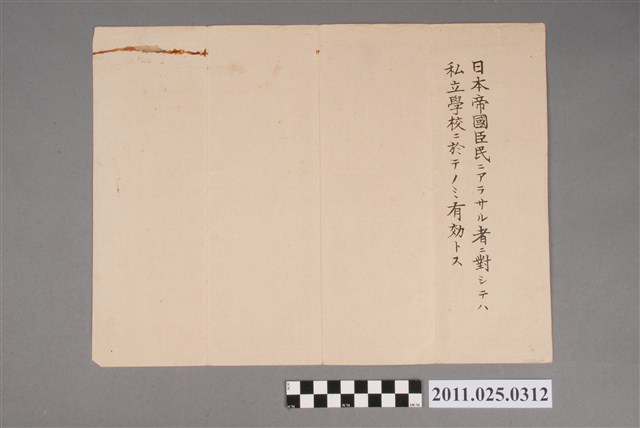 日本帝國臣民ニアラサル者ニ對シテハ
私立學校ニ於テノミ有効トス
2011.025.0312